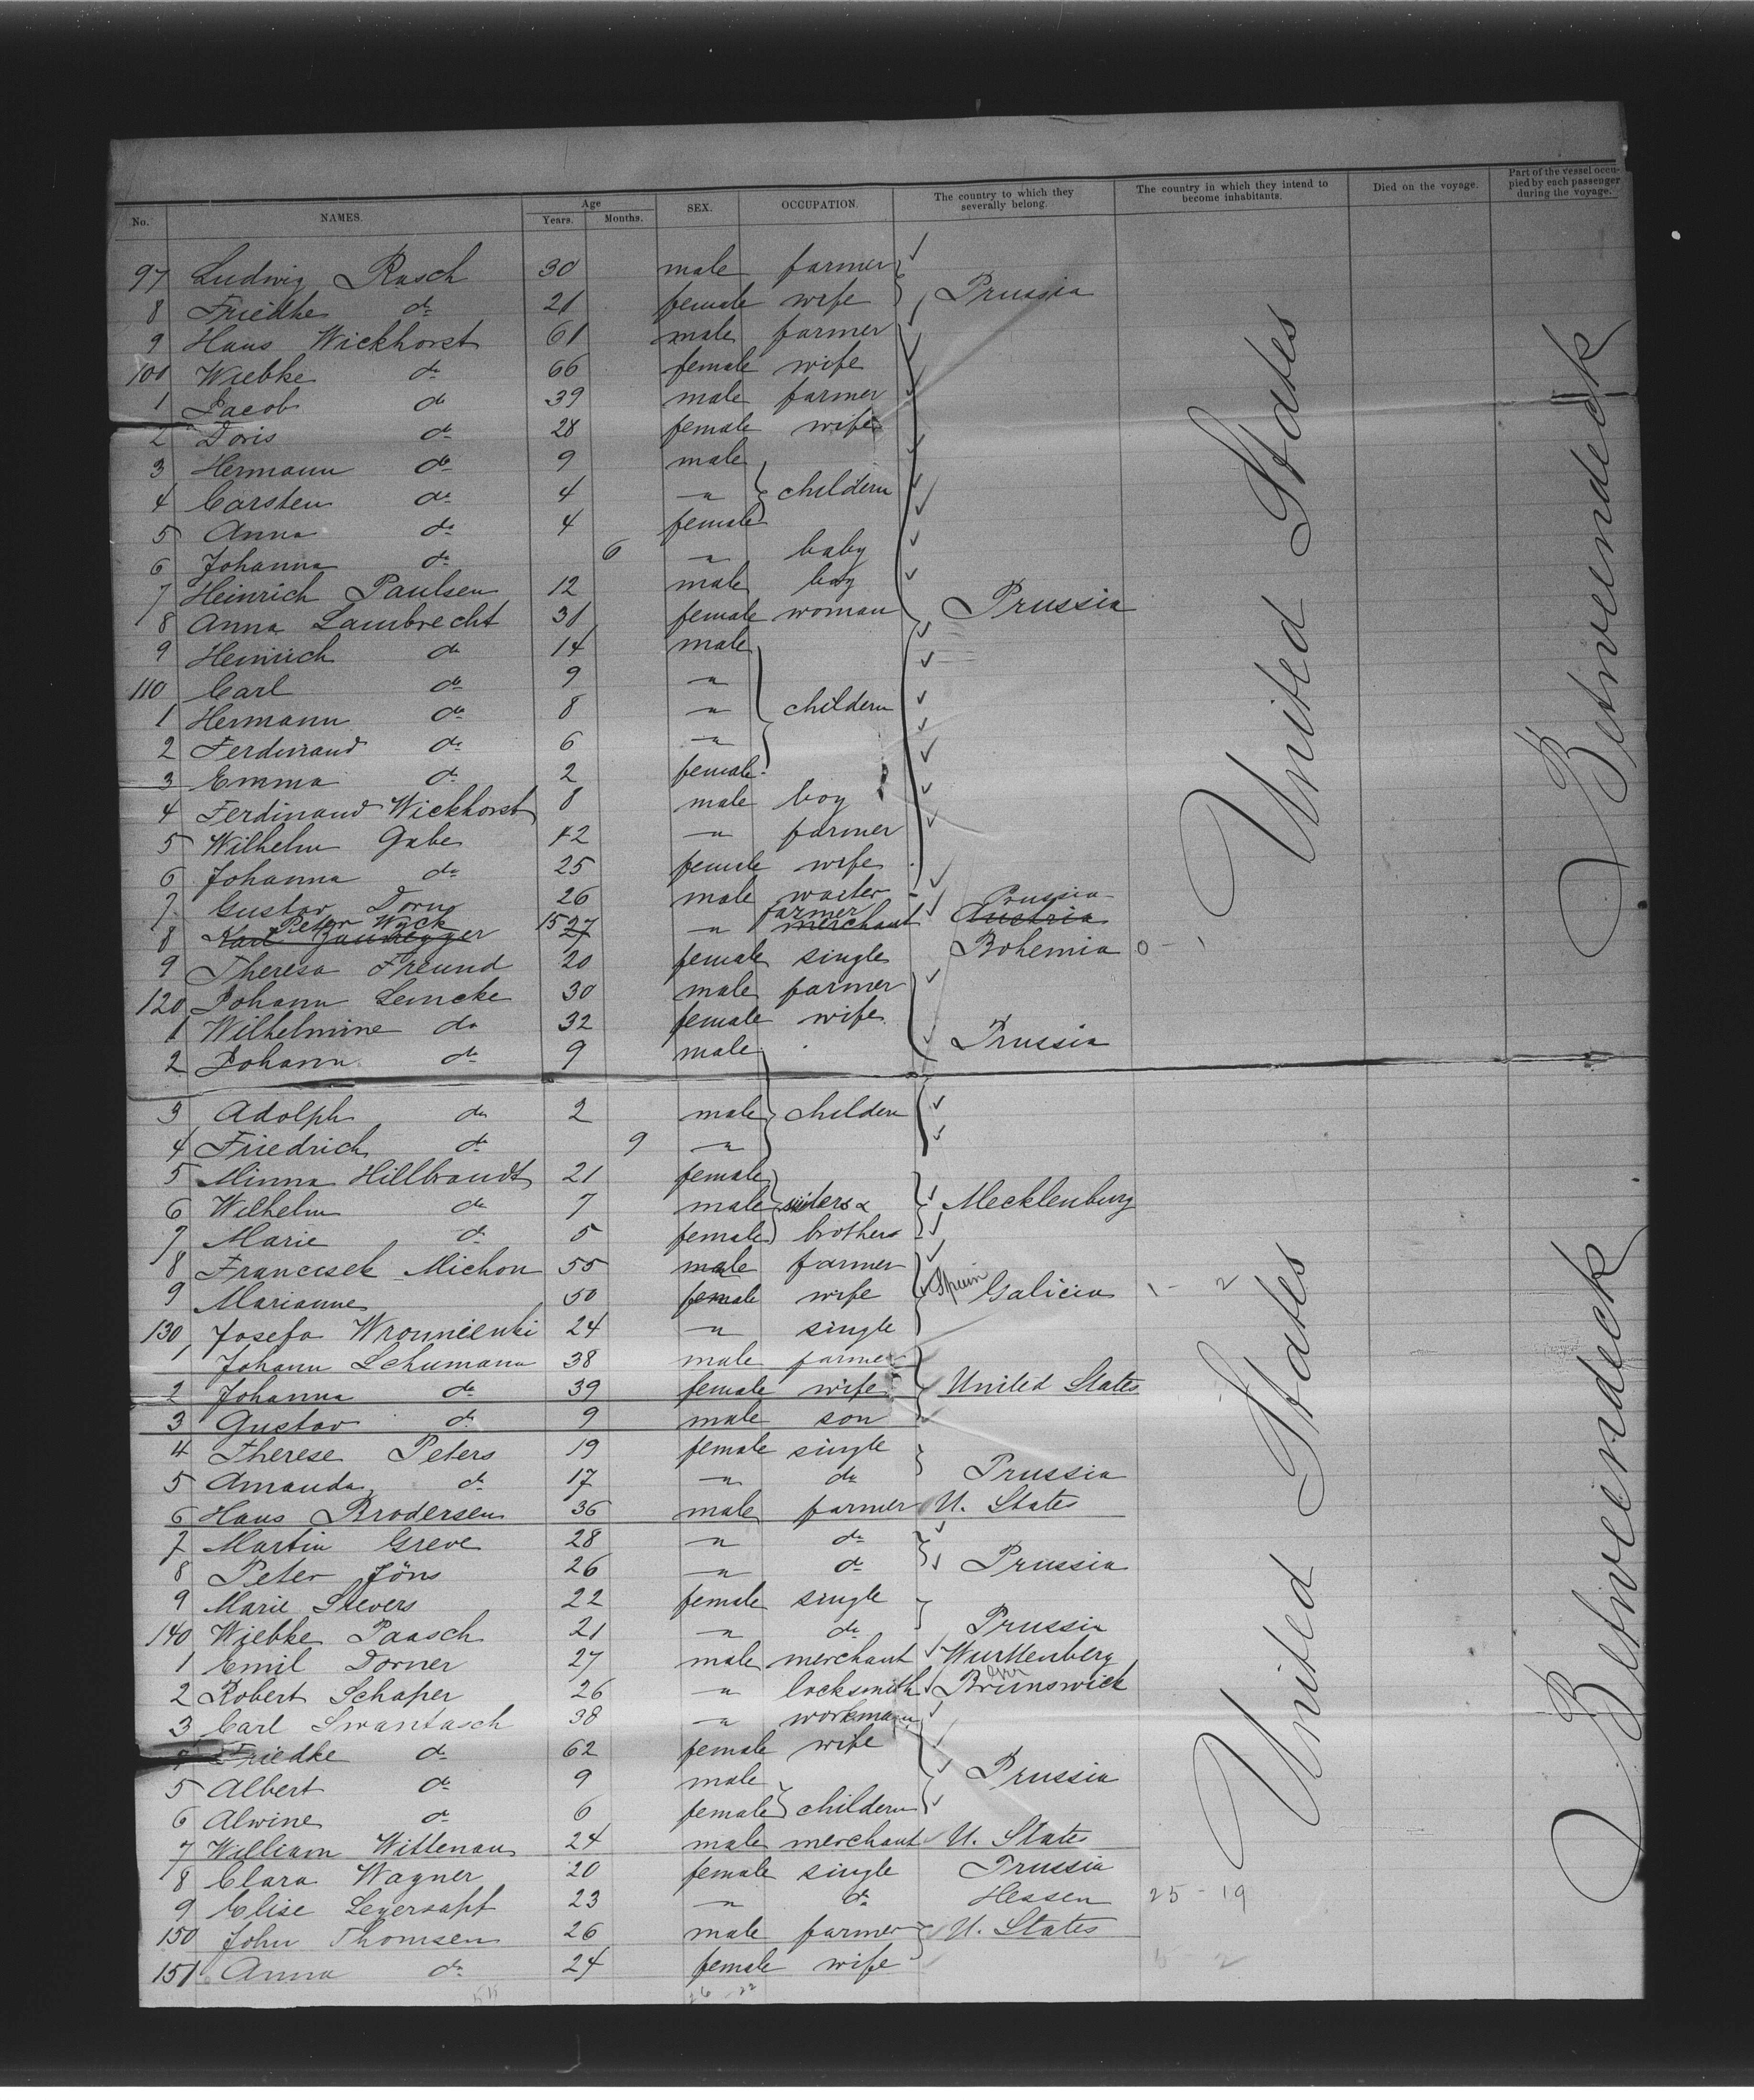 No. NAMES. Age Years. Months. SEX. OCCUPATION. The country to which they severally belong. The country in which they intend to become inhabitants. Died on the voyage. Part of the vessel occupied by each passenger during the voyage.
97 Ludwig Rasch 30 male farmer
8 Friedke do 21 female wife Prussia
9 Hans Wickhorst 61 male farmer
100 Wiebke do 66 female wife
1 Jacob do 39 male farmer
2 Doris do 28 female wife
3 Hermann do 9 male
4 Carsten do 4 " childern
5 Anna do 4 female
6 Johanna do 6 " baby
7 Heinrich Paulsen 12 male boy
8 Anna Lambrecht 31 female woman Prussia
9 Heinrich do 14 male
110 Carl do 9 "
1 Hermann do 8 " childern
2 Ferdinand do 6 "
3 Emma do 2 female
4 Ferdinand Wickhorst 8 male boy
5 Wilhelm Gabe 42 " farmer
6 Johanna do 25 female wife
7 Gustav Dorn 26 male waiter Prussia
Peter Wyck 15 farmer
8 Karl 27 " merchant Austria
9 Theresa Freund 20 female single Bohemia 0 - 1
120 Johann Lemcke 30 male farmer
1 Wilhelmine do 32 female wife
2 Johann do 9 male Prussia
3 Adolph do 2 male childern
4 Friedrich do 9 "
5 Minna Hillbrandt 21 female
6 Wilhelm do 7 male sisters & Mecklenburg
7 Marie do 5 female brothers
8 Francisek Michon 55 male farmer
9 Marianne 50 female wife Spain Galicia 1 - 2
130 Josefa 24 " single
1 Johann Schumann 38 male farmer
2 Johanna do 39 female wife United States
3 Gustav do 9 male son
4 Therese Peters 19 female single
5 Amanda do 17 " do Prussia
6 Hans Brodersen 36 male farmer U. States
7 Martin Greve 28 " do
8 Peter Jöns 26 " do Prussia
9 Marie Sievers 22 female single
140 Wiebke Paasch 21 " do Prussia
1 Emil Dorner 27 male merchant Wurttenberg
2 Robert Schaper 26 " locksmith Ger Brunswick
3 Carl Swantasch 38 " workman
Friedke do 62 female wife
5 Albert do 9 male Prussia
6 Alwine do 6 female childern
7 William Wittenau 24 male merchant U. States
8 Clara Wagner 20 female single Prussia
9 Elise Leyersapf 23 " do Hessen 25 - 19
150 John Thomsen 26 male farmer U. States
151 Anna do 24 female wife 6 - 2
26 22
United States
United States
Betweendeck
Betweendeck